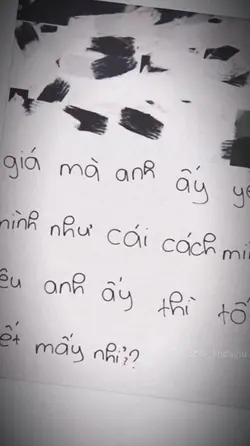 giá mà anh ấy yê
mình như cái cách mìn
êu anh ấy thì tố
ết mấy nhỉ??